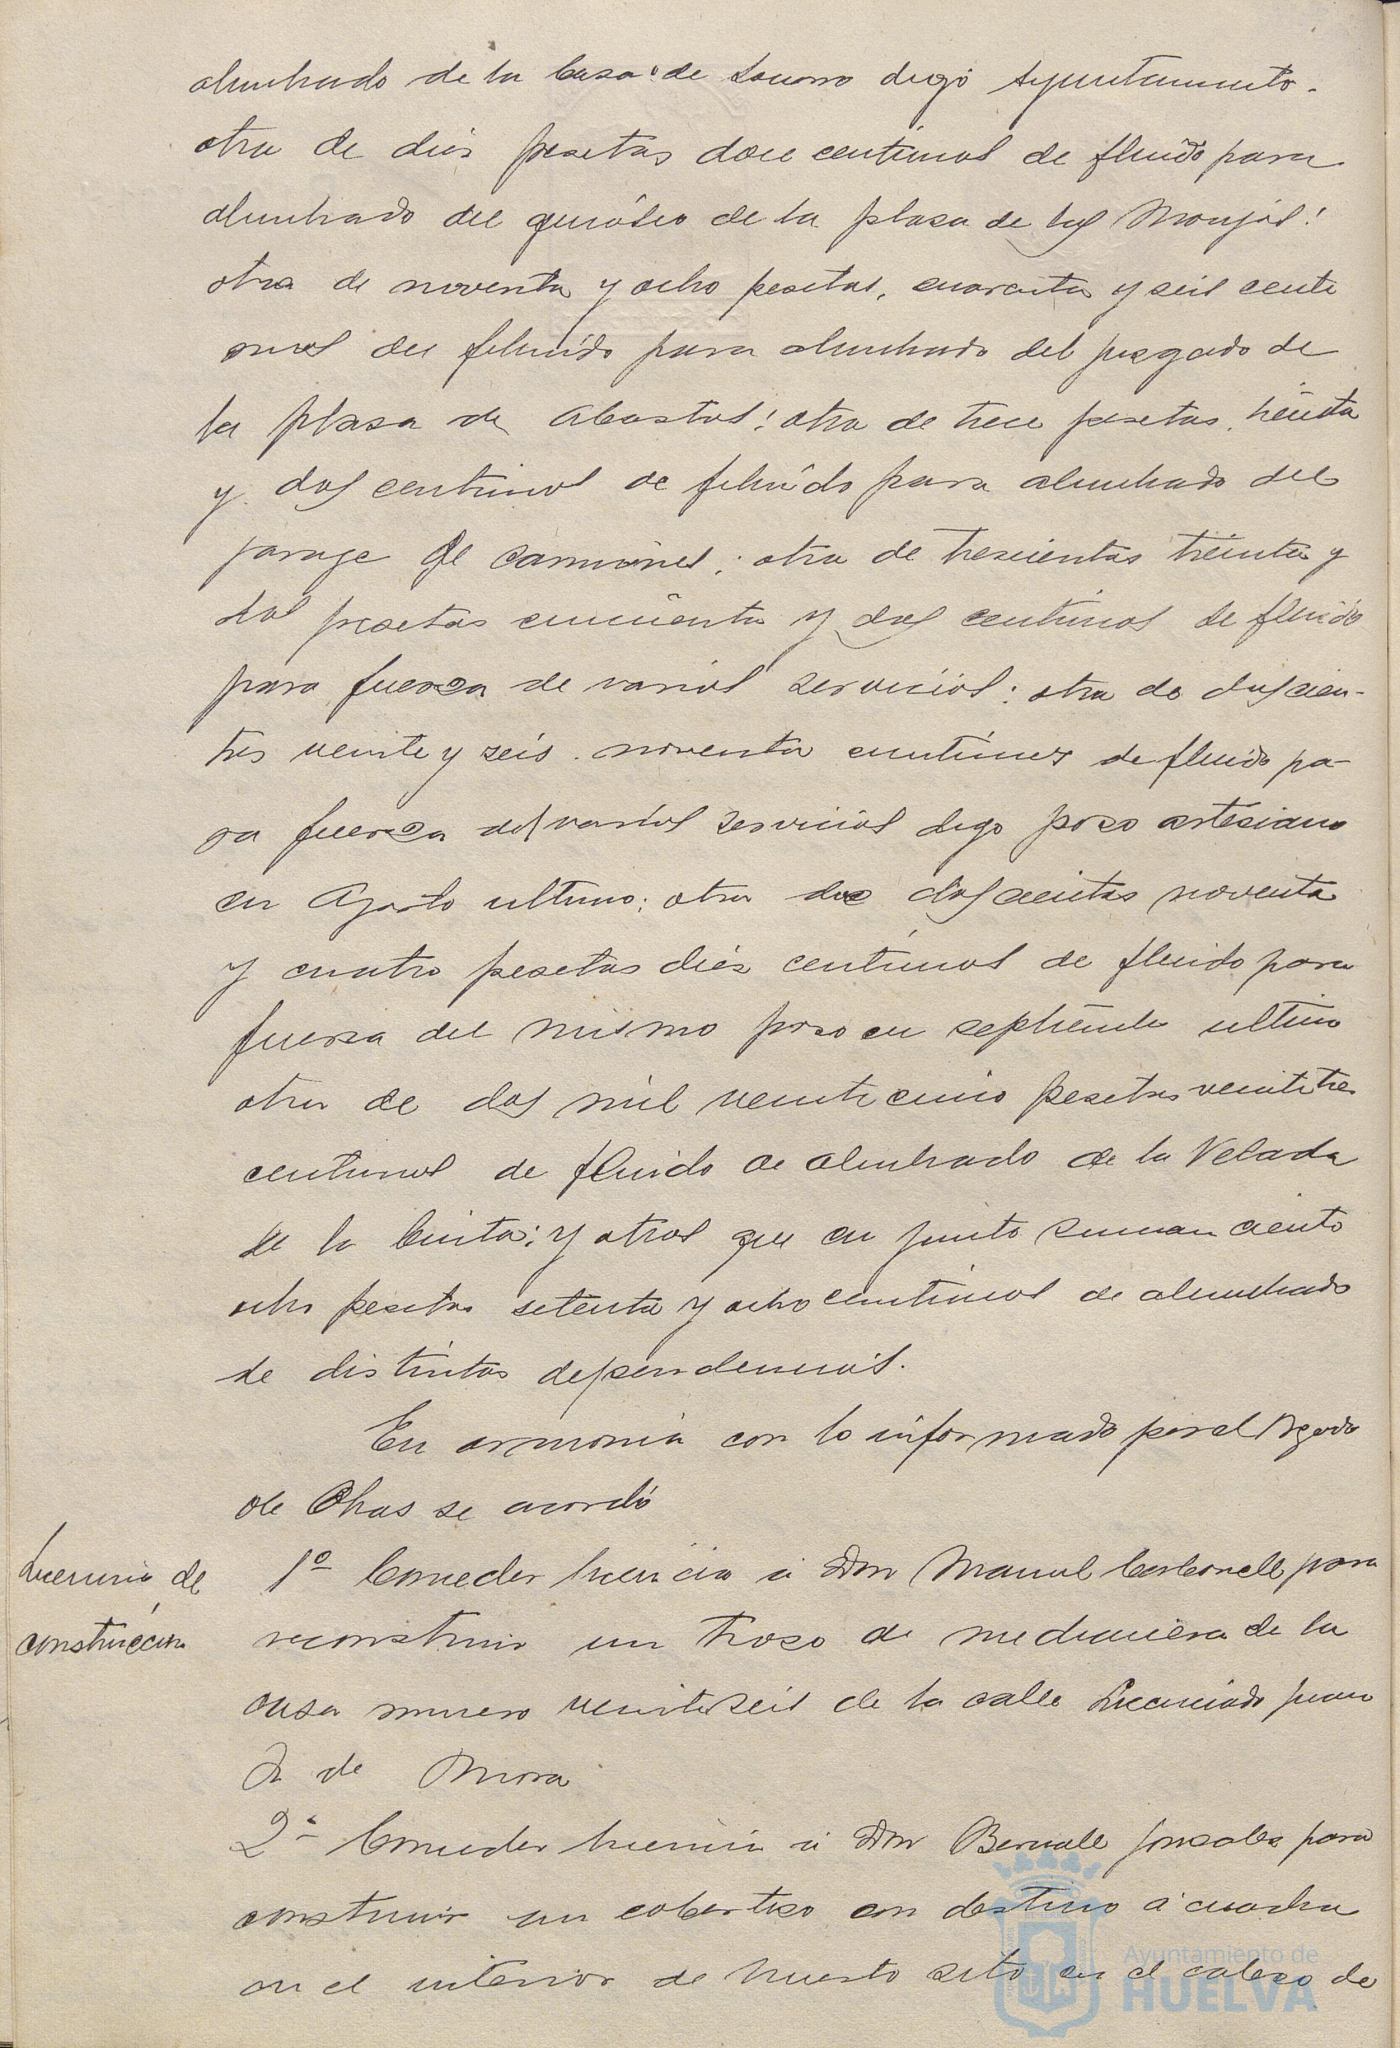 alumbrado de la Casa de Socorro digo Ayuntamiento.
otra de diés pesetas doce centimos de fluido para
alumbrado del quiósco de la plasa de las Monjas!
otra de noventa y ocho pesetas, cuarenta y seis centi
mos de fluido para alumbrado del jusgado de
la plasa de Abastos! otra de trece pesetas, treinta
y dos centimos de fluido para alumbrado del
garage de camiones; otra de trescientas treinta y
dos pesetas cincuenta y dos centimos de fluido
para fuersa de varios servicios; otra de doscien-
tas veinte y seis noventa centimos de fluido pa-
ra fuersa de varios servicios digo poso artesiano
en Agosto ultimo; otra de doscientas noventa
y cuatro pesetas diés centimos de fluido para
fuersa del mismo poso en septiembre ultimo
otra de dos mil veinticinco pesetas veintitres
centimos de fluido de alumbrado de la Velada
de la Cinta; y otras que en junto suman ciento
ocho pesetas setenta y ocho centimos de alumbrado
de distintas dependencias.
En armonia con lo informado por el Negdo
de Obras se acordó
Licencia de
construccion
1º Conceder licencia á Don Manuel Carbonell para
reconstruir un troso de medianera de la
casa numero veintiseis de la calle Licenciado juan
A. de Mora
2º Conceder licencia á Don Bernabe Gonsales para
construir un cobertiso con destino á cuadra
en el interior de huerto sito en el cabeso de
Ayuntamiento de
HUELVA